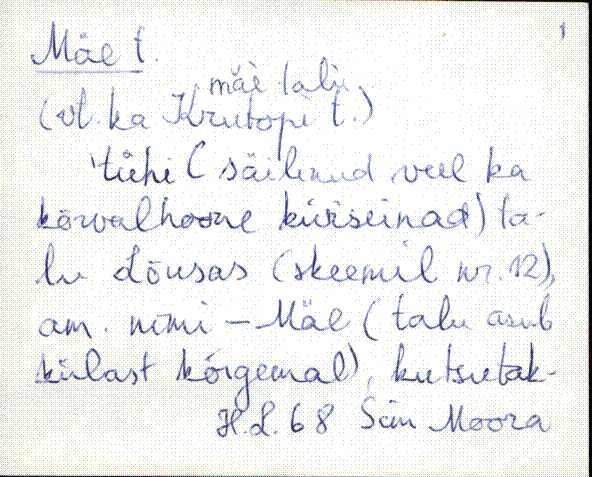 1
Mäe t.
mäe talu
(vt. ka Krutopi t.)
tühi (säilinud veel ka
kõrvalhoone kiviseinad) ta-
lu Lõusas (skeemil nr. 12),
am. nimi – Mäe (talu asub
külast kõrgemal), kutsutak-
H.L. 68 Siin Moora